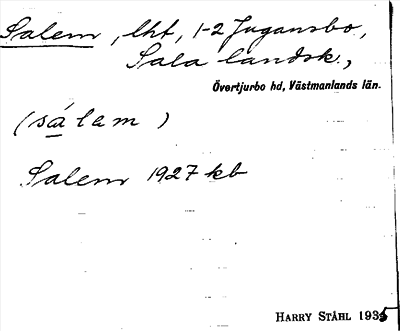 Salem, lht, 1-2 Jugansbo,
Sala landsk.,
Övertjurbo hd, Västmanlands län.
(sálam)
Salem 1927 kb
HARRY STÅHL 1935